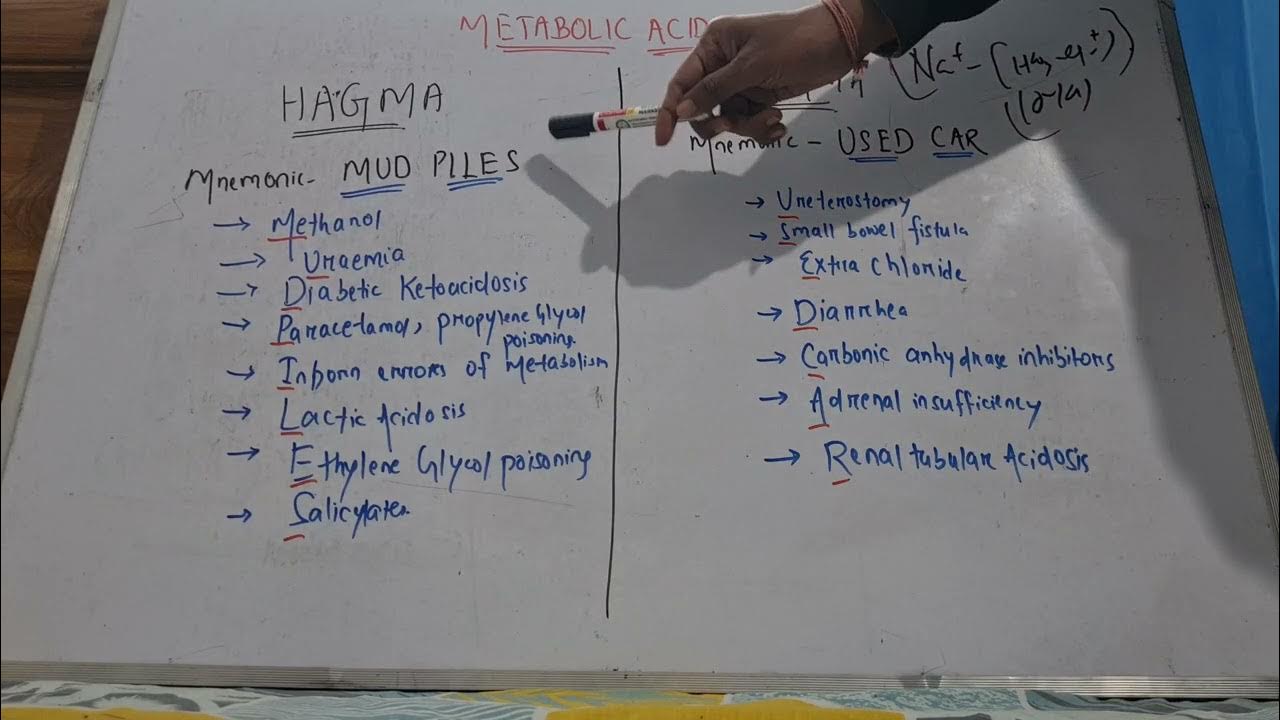 METABOLIC ACID
HAGMA
Mnemonic- MUD PILES
→ Methanol
→ Uraemia
→ Diabetic Ketoacidosis
→ Paracetamol, propylene Glycol
poisoning.
→ Inborn errors of Metabolism
→ Lactic Acidosis
→ Ethylene Glycol poisoning
→ Salicylates
Mnemonic - USED CAR
→ Ureterostomy
→ Small bowel fistula
→ Extra Chloride
→ Diarrhea
→ Carbonic anhydrase inhibitors
→ Adrenal insufficiency
→ Renal tubular Acidosis